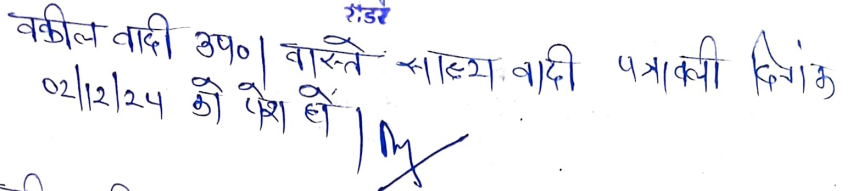 रीडर
वकील वादी उप०। वास्ते साक्ष्य वादी पत्रावली दिनांक
02/12/24 को पेश हो।